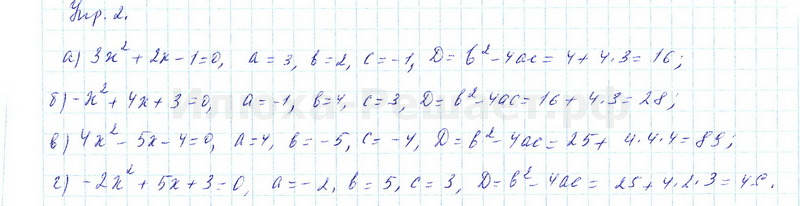 Упр. 2.
а) 3x² + 2x - 1 = 0, a = 3, b = 2, c = -1, D = b² - 4ac = 4 + 4·3 = 16;
б) -x² + 4x + 3 = 0, a = -1, b = 4, c = 3, D = b² - 4ac = 16 + 4·3 = 28;
в) 4x² - 5x - 4 = 0, a = 4, b = -5, c = -4, D = b² - 4ac = 25 + 4·4·4 = 89;
г) -2x² + 5x + 3 = 0, a = -2, b = 5, c = 3, D = b² - 4ac = 25 + 4·2·3 = 49.
илюха-решает.рф